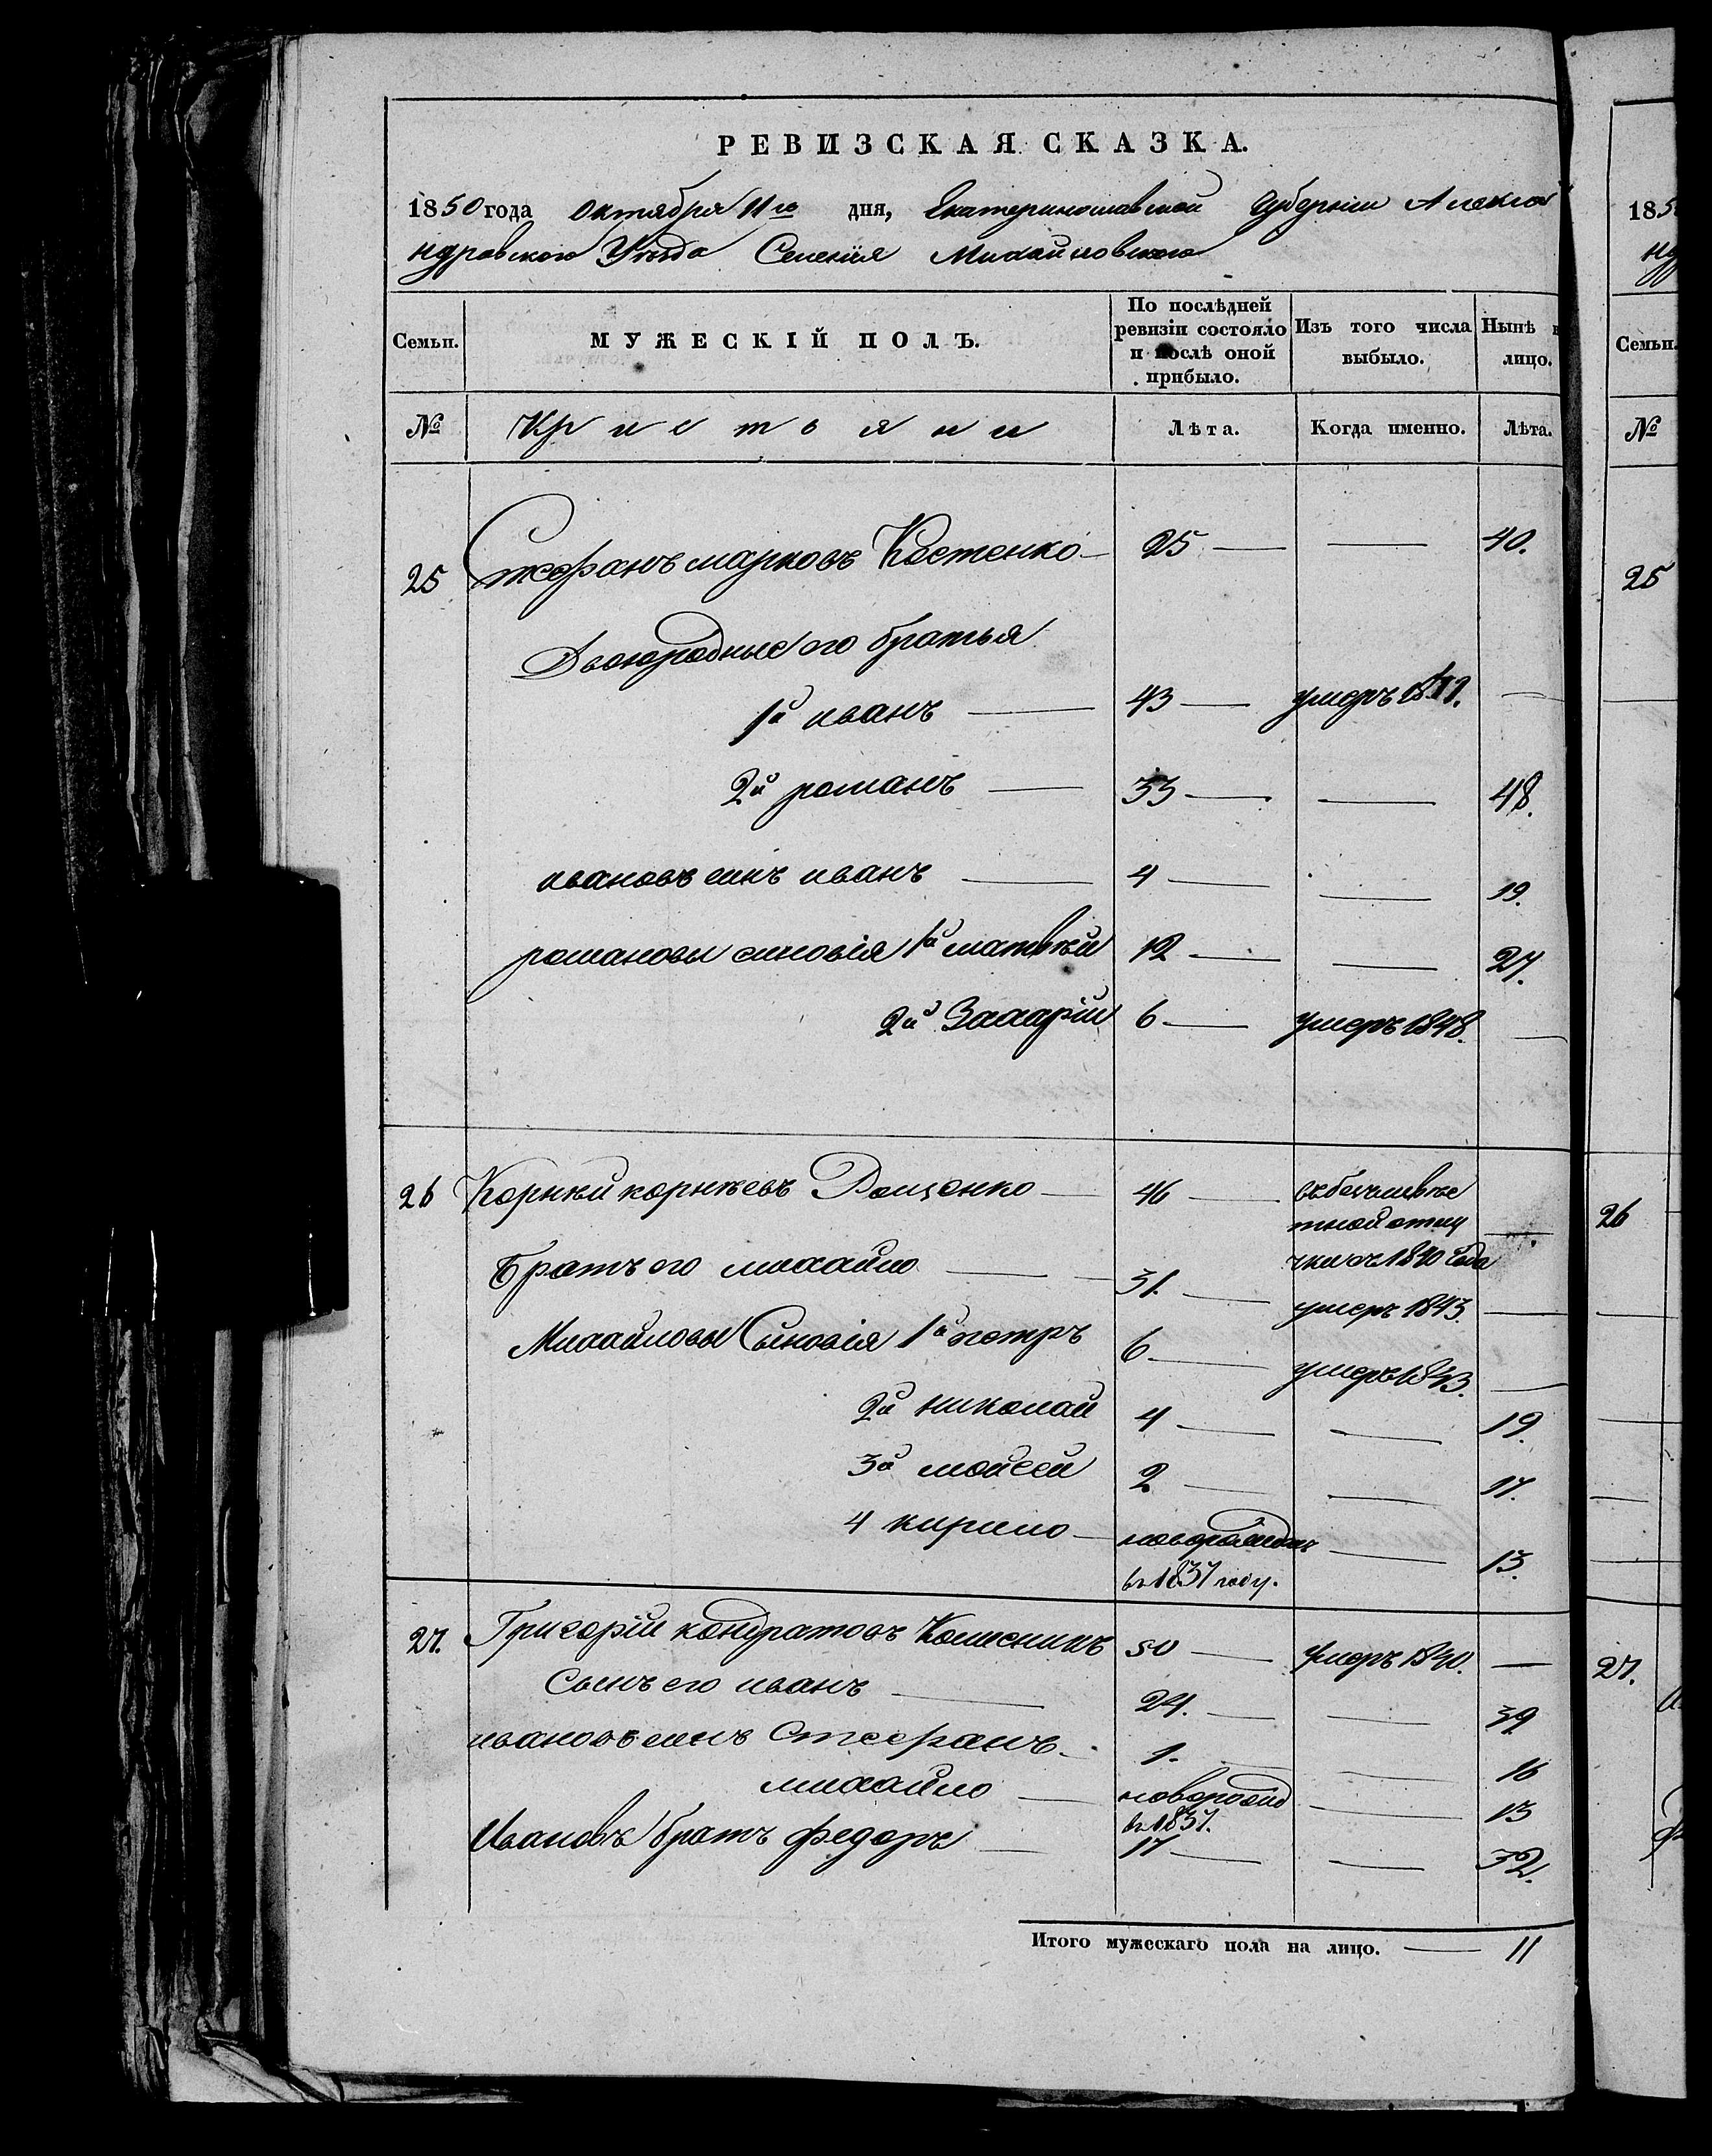 РЕВИЗСКАЯ СКАЗКА.
1850 года октября 11го дня, Екатеринославской Губернии Алекса
ндровского Уезда Селения Михайловского
Семьи. МУЖЕСКІЙ ПОЛЪ. По послѣдней ревизіи состояло и послѣ оной прибыло. Изъ того числа выбыло. Нынѣ в лицо.
№ Крестьяни Лѣта. Когда именно. Лѣта.
25 Стефанъ марковъ Костенко 25 — — 40.
Двоюродные его братья
1й иванъ — 43 — умеръ —
2й романъ — 33 — — 48.
ивановъ синъ иванъ — 4 — — 19.
романовы синовія 1й матвѣй 12 — — 27.
2й Захарій 6 — умеръ 1848. —
26 Корнѣй корнѣевъ Рощенко — 46 — въ безъизвѣс
тной отлу
чки съ 1840 года —
Братъ его михайло — 31. — умеръ 1843. —
Михайловы Сыновія 1й петръ 6 — умеръ 1843. —
2й николай 4 — — 19.
3й мойсей 2 — — 17.
4 кирило — новорожденъ — 13.
въ 1837 году.
27. Григорій кондратовъ Колесникъ 50 — умеръ 1840. —
Сынъ его иванъ — 24. — — 39.
ивановъ синъ Стефанъ — 1. — — 16
михайло — новорожд — 13
въ 1837.
Ивановъ братъ федоръ — 17 — — 32.
Итого мужескаго пола на лицо. — 11
185
нд
Семьи.
№
25
26
27.